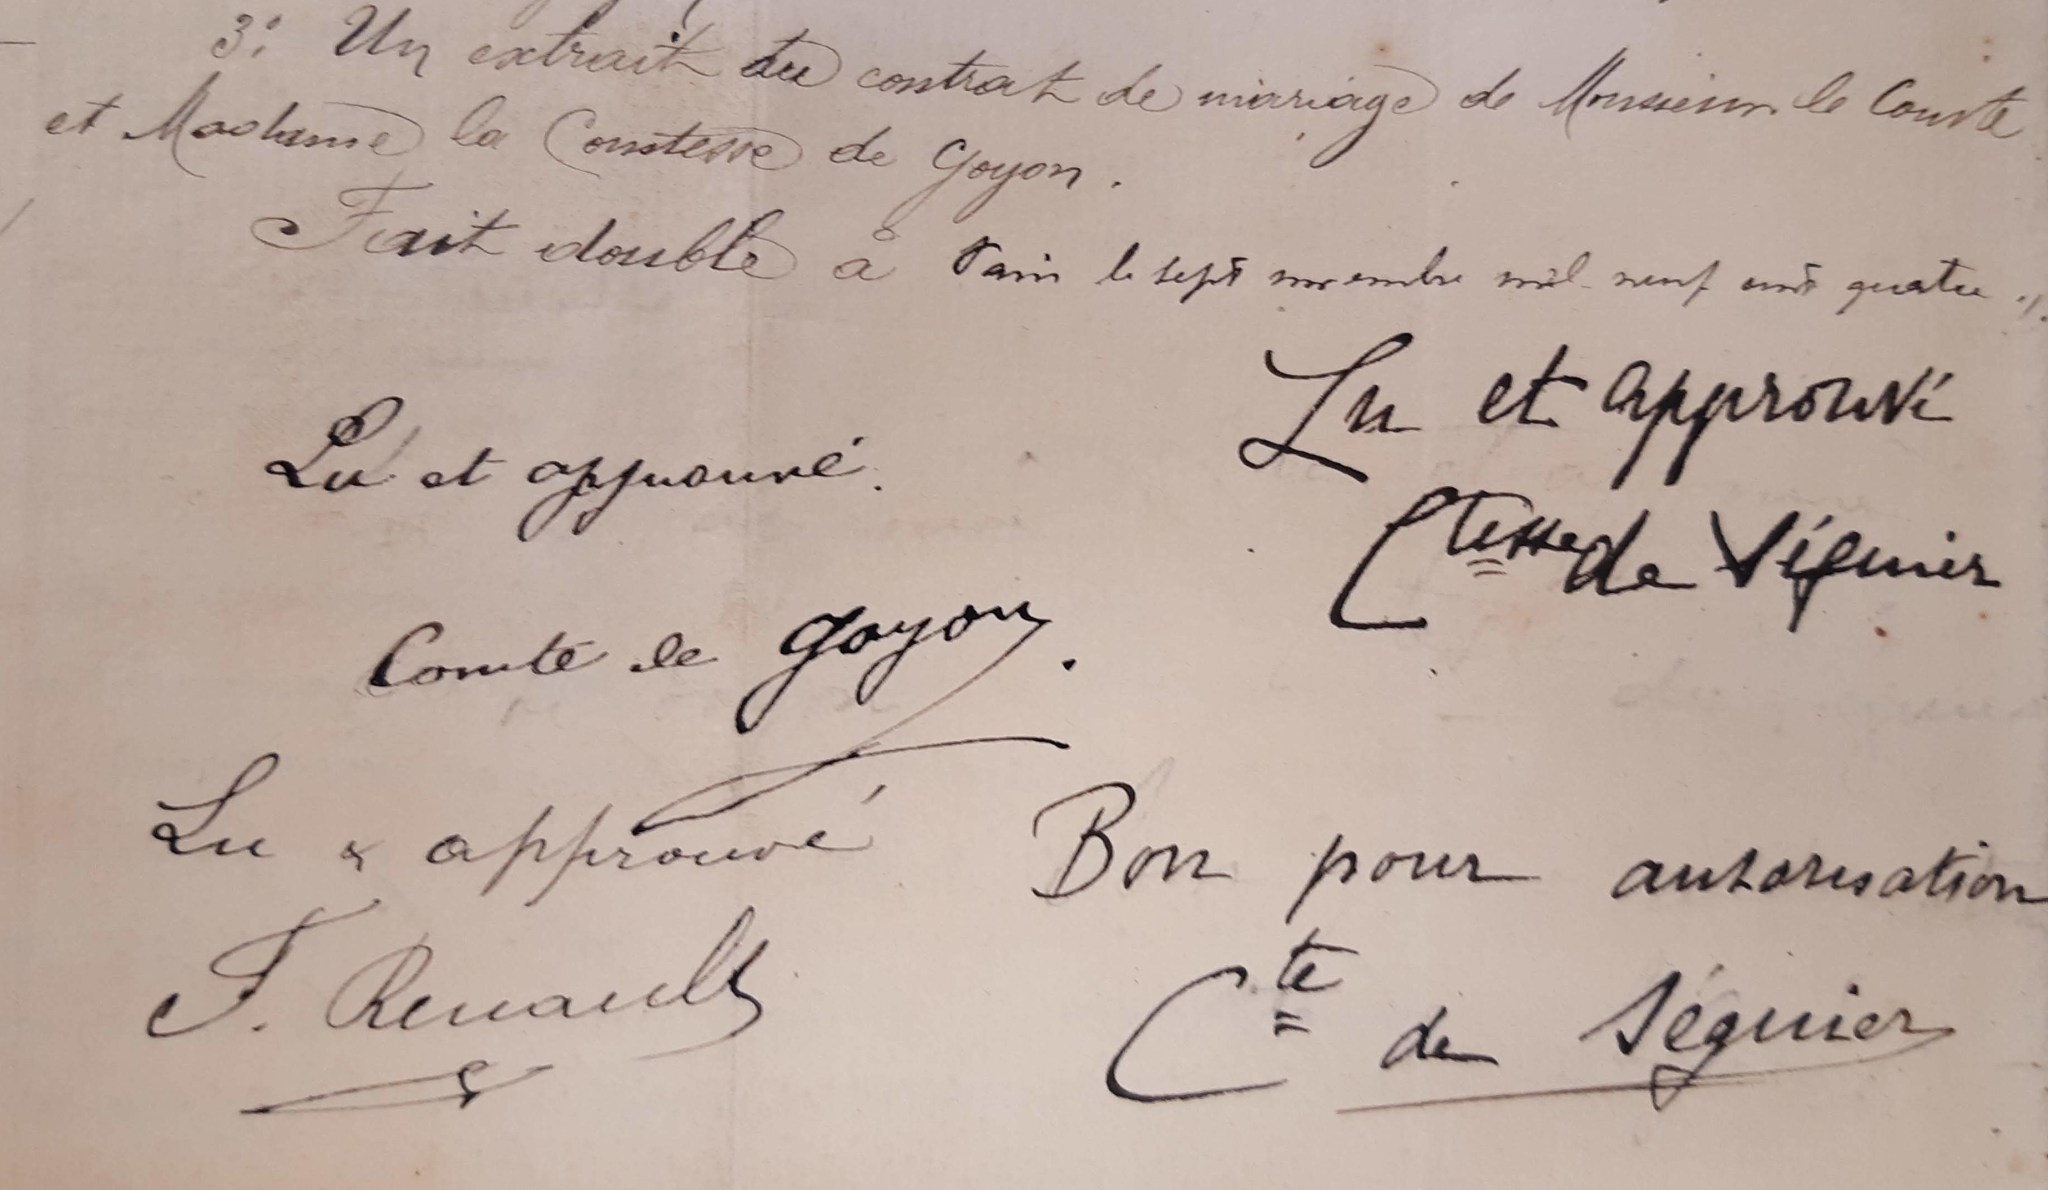 3° Un extrait du contrat de mariage de Monsieur le Comte
et Madame la Comtesse de Goyon.
Fait double à Paris le sept novembre mil neuf cent quatre ./.
Lu et approuvé
Lu et approuvé.
Ctesse de Séguier
Comte de Goyon.
Lu & approuvé
Bon pour autorisation
F. Renault
Cte de Séguier